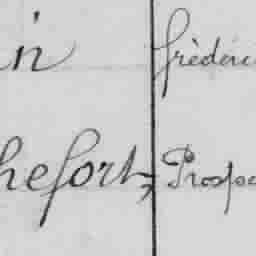 n frédéric
hefort, Prospe